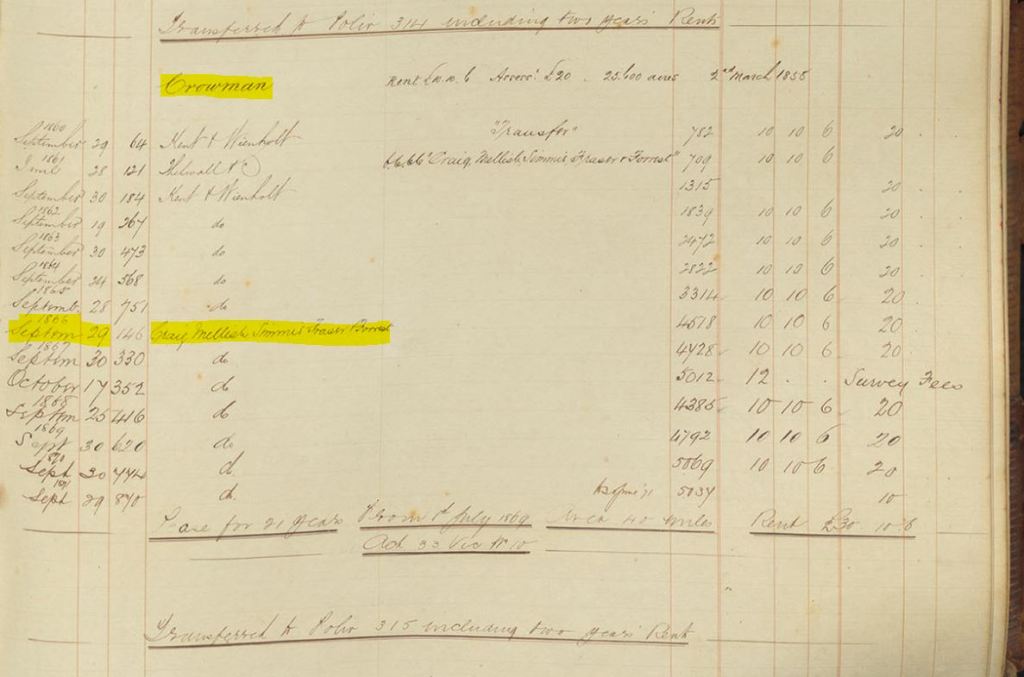 Transferred to Folio 314 including two years Rent
Crowman Rent £10.10.6 Assess: £20 . 25.600 acres 2nd March 1855
1860
September 29 64 Kent & Wienholt "Transfer" 782 10 10 6 20 .
1861
28 121 "Craig, Mellish, Simmis Fraser & Forrest" 709 10 10 6
September 30 184 Kent & Wienholt 1315 20 .
1862
September 19 267 do 1839 10 10 6 20 .
1863
September 30 473 do 2472 10 10 6 20 .
1864
September 24 568 do 2822 10 10 6 20 .
1865
Septemb. 28 751 do 3314 10 10 6 20 .
1866
Septem 29 146 Craig, Mellish Simmis Fraser & Forrest 4518 10 10 6 20
1867
Septem 30 330 do 4728 10 10 6 20
October 17 352 do 5012 12 . . Survey Fees
1868
Septem 25 416 do 4385 10 10 6 20
1869
Sept 30 620 do 4792 10 10 6 20
1870
Sept 30 774 d. 5069 10 10 6 20
1871
Sept 29 870 d. 5034 10
Lease for 21 years From 1st July 1869 Area 40 miles Rent £30 10.6
Act 33 Vic No 10
Transferred to Folio 315 including two years Rent